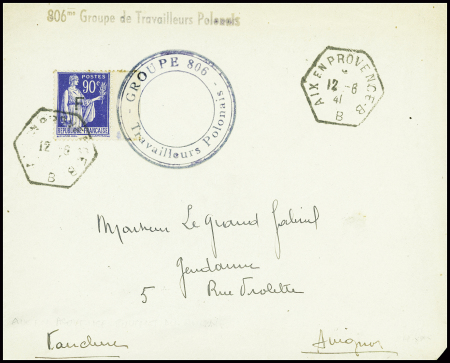 806me Groupe de Travailleurs Polonais
POSTES
90c
F
REPUBLIQUE FRANCAISE
GROUPE 806
Travailleurs Polonais
AIX EN PROVENCE-B
*
12 -6
41
B
12 -6
B
Monsieur Le Grand Gabriel
Gendarme
5 Rue Violette
Vaucluse
Avignon